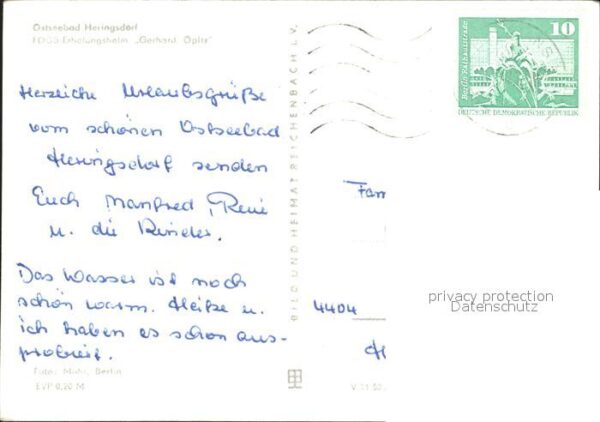 Ostseebad Heringsdorf
FDGB-Erholungsheim „Gerhard Opitz“
Herzliche Urlaubsgrüße
vom schönen Ostseebad
Heringsdorf senden
Euch Manfred, Reni
u. die Kinder.
Das Wasser ist noch
schön warm. u.
ich haben es schon aus-
probiert.
Foto: Mohr, Berlin
EVP 0,20 M
BILD UND HEIMAT REICHENBACH I. V.
V 11 50
10
Berlin, Rathausstraße
DEUTSCHE DEMOKRATISCHE REPUBLIK
Fam
4404
privacy protection
Datenschutz